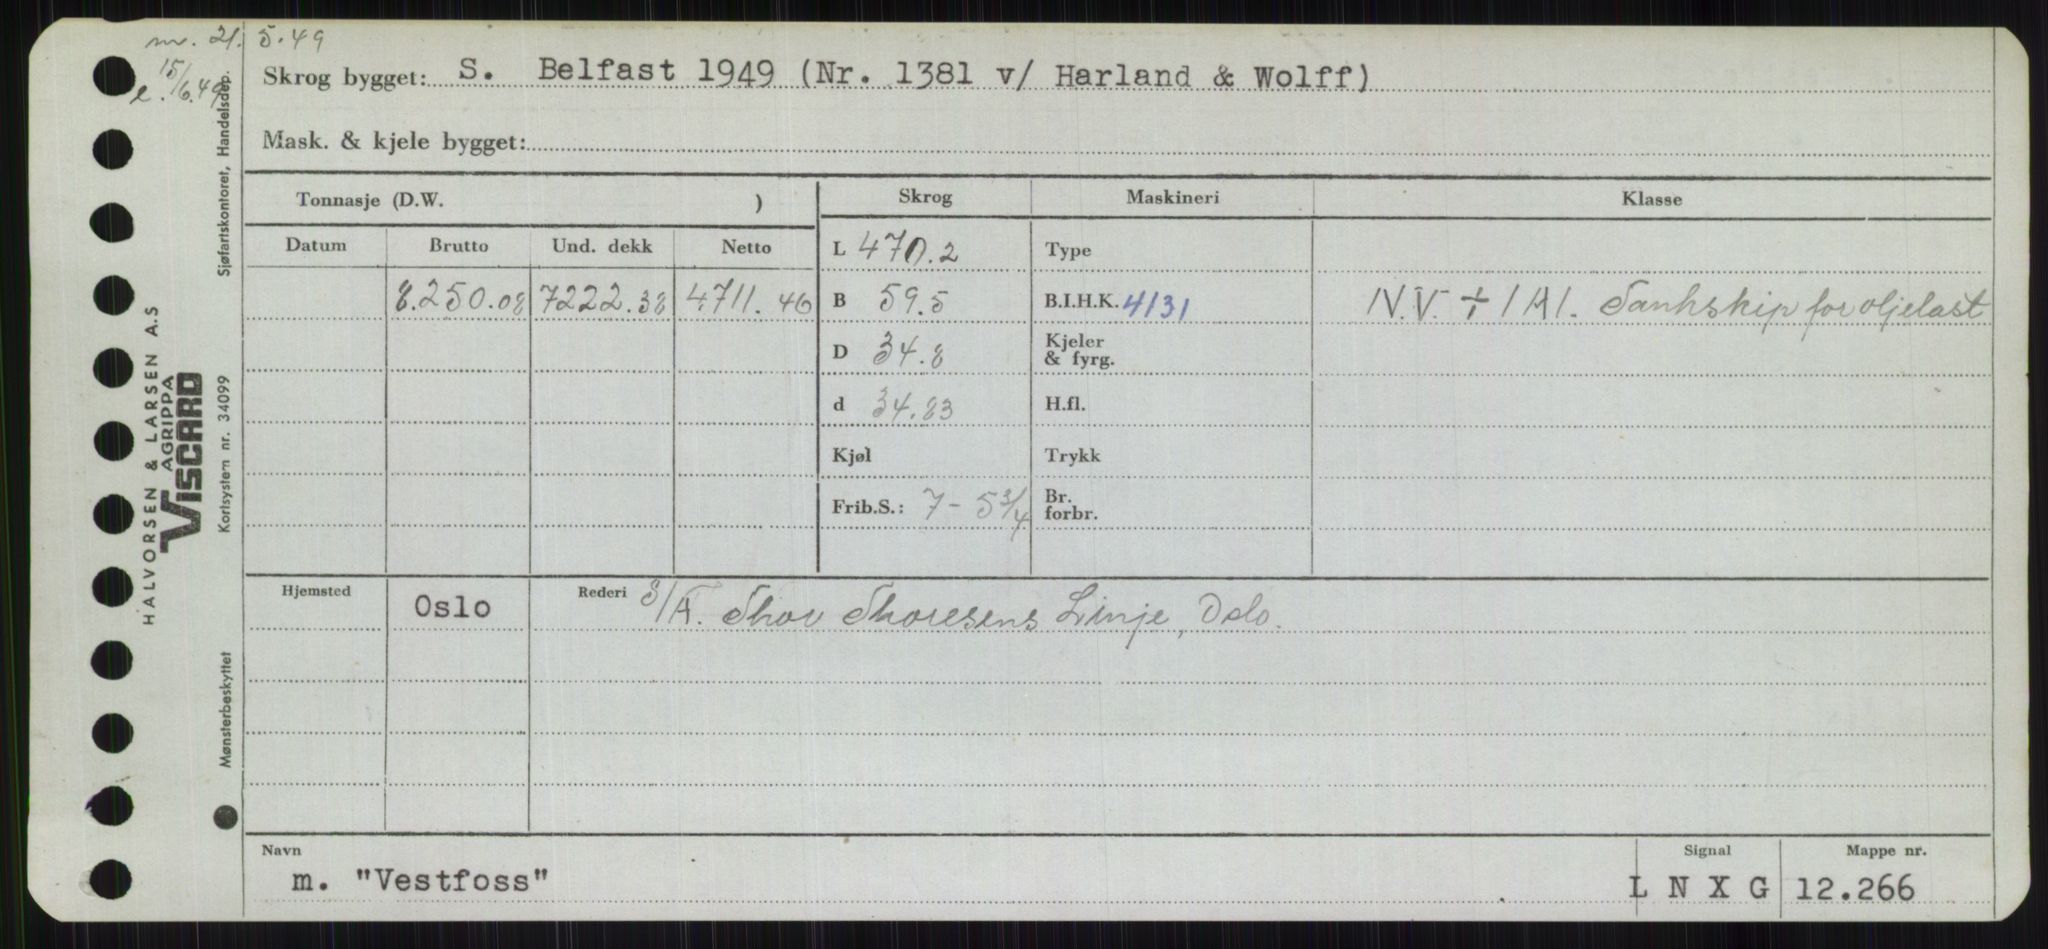 m. 21. 5.49
e. 15/6.49
Skrog bygget: S. Belfast 1949 (Nr. 1381 v/ Harland & Wolff)
Mask. & kjele bygget:
Tonnasje (D.W. )
Skrog Maskineri Klasse
Datum Brutto Und. dekk Netto
L 470.2 Type
8.250.08 7222.38 4711.46 B 59.5 B.I.H.K. 4131 N.V. + 1A1. Tankskip for oljelast
D 34.8 Kjeler
& fyrg.
d 34.83 H.fl.
Kjøl Trykk
Frib.S.: 7-5 3/4 Br.
forbr.
Hjemsted Oslo Rederi S/A. Thor Thoresens Linje, Oslo.
Navn Signal Mappe nr.
m. "Vestfoss" L N X G 12.266
HALVORSEN & LARSEN A.S
AGRIPPA
VISCARD
Mønsterbeskyttet Kortsystem nr. 34099 Sjøfartskontoret, Handelsdep.